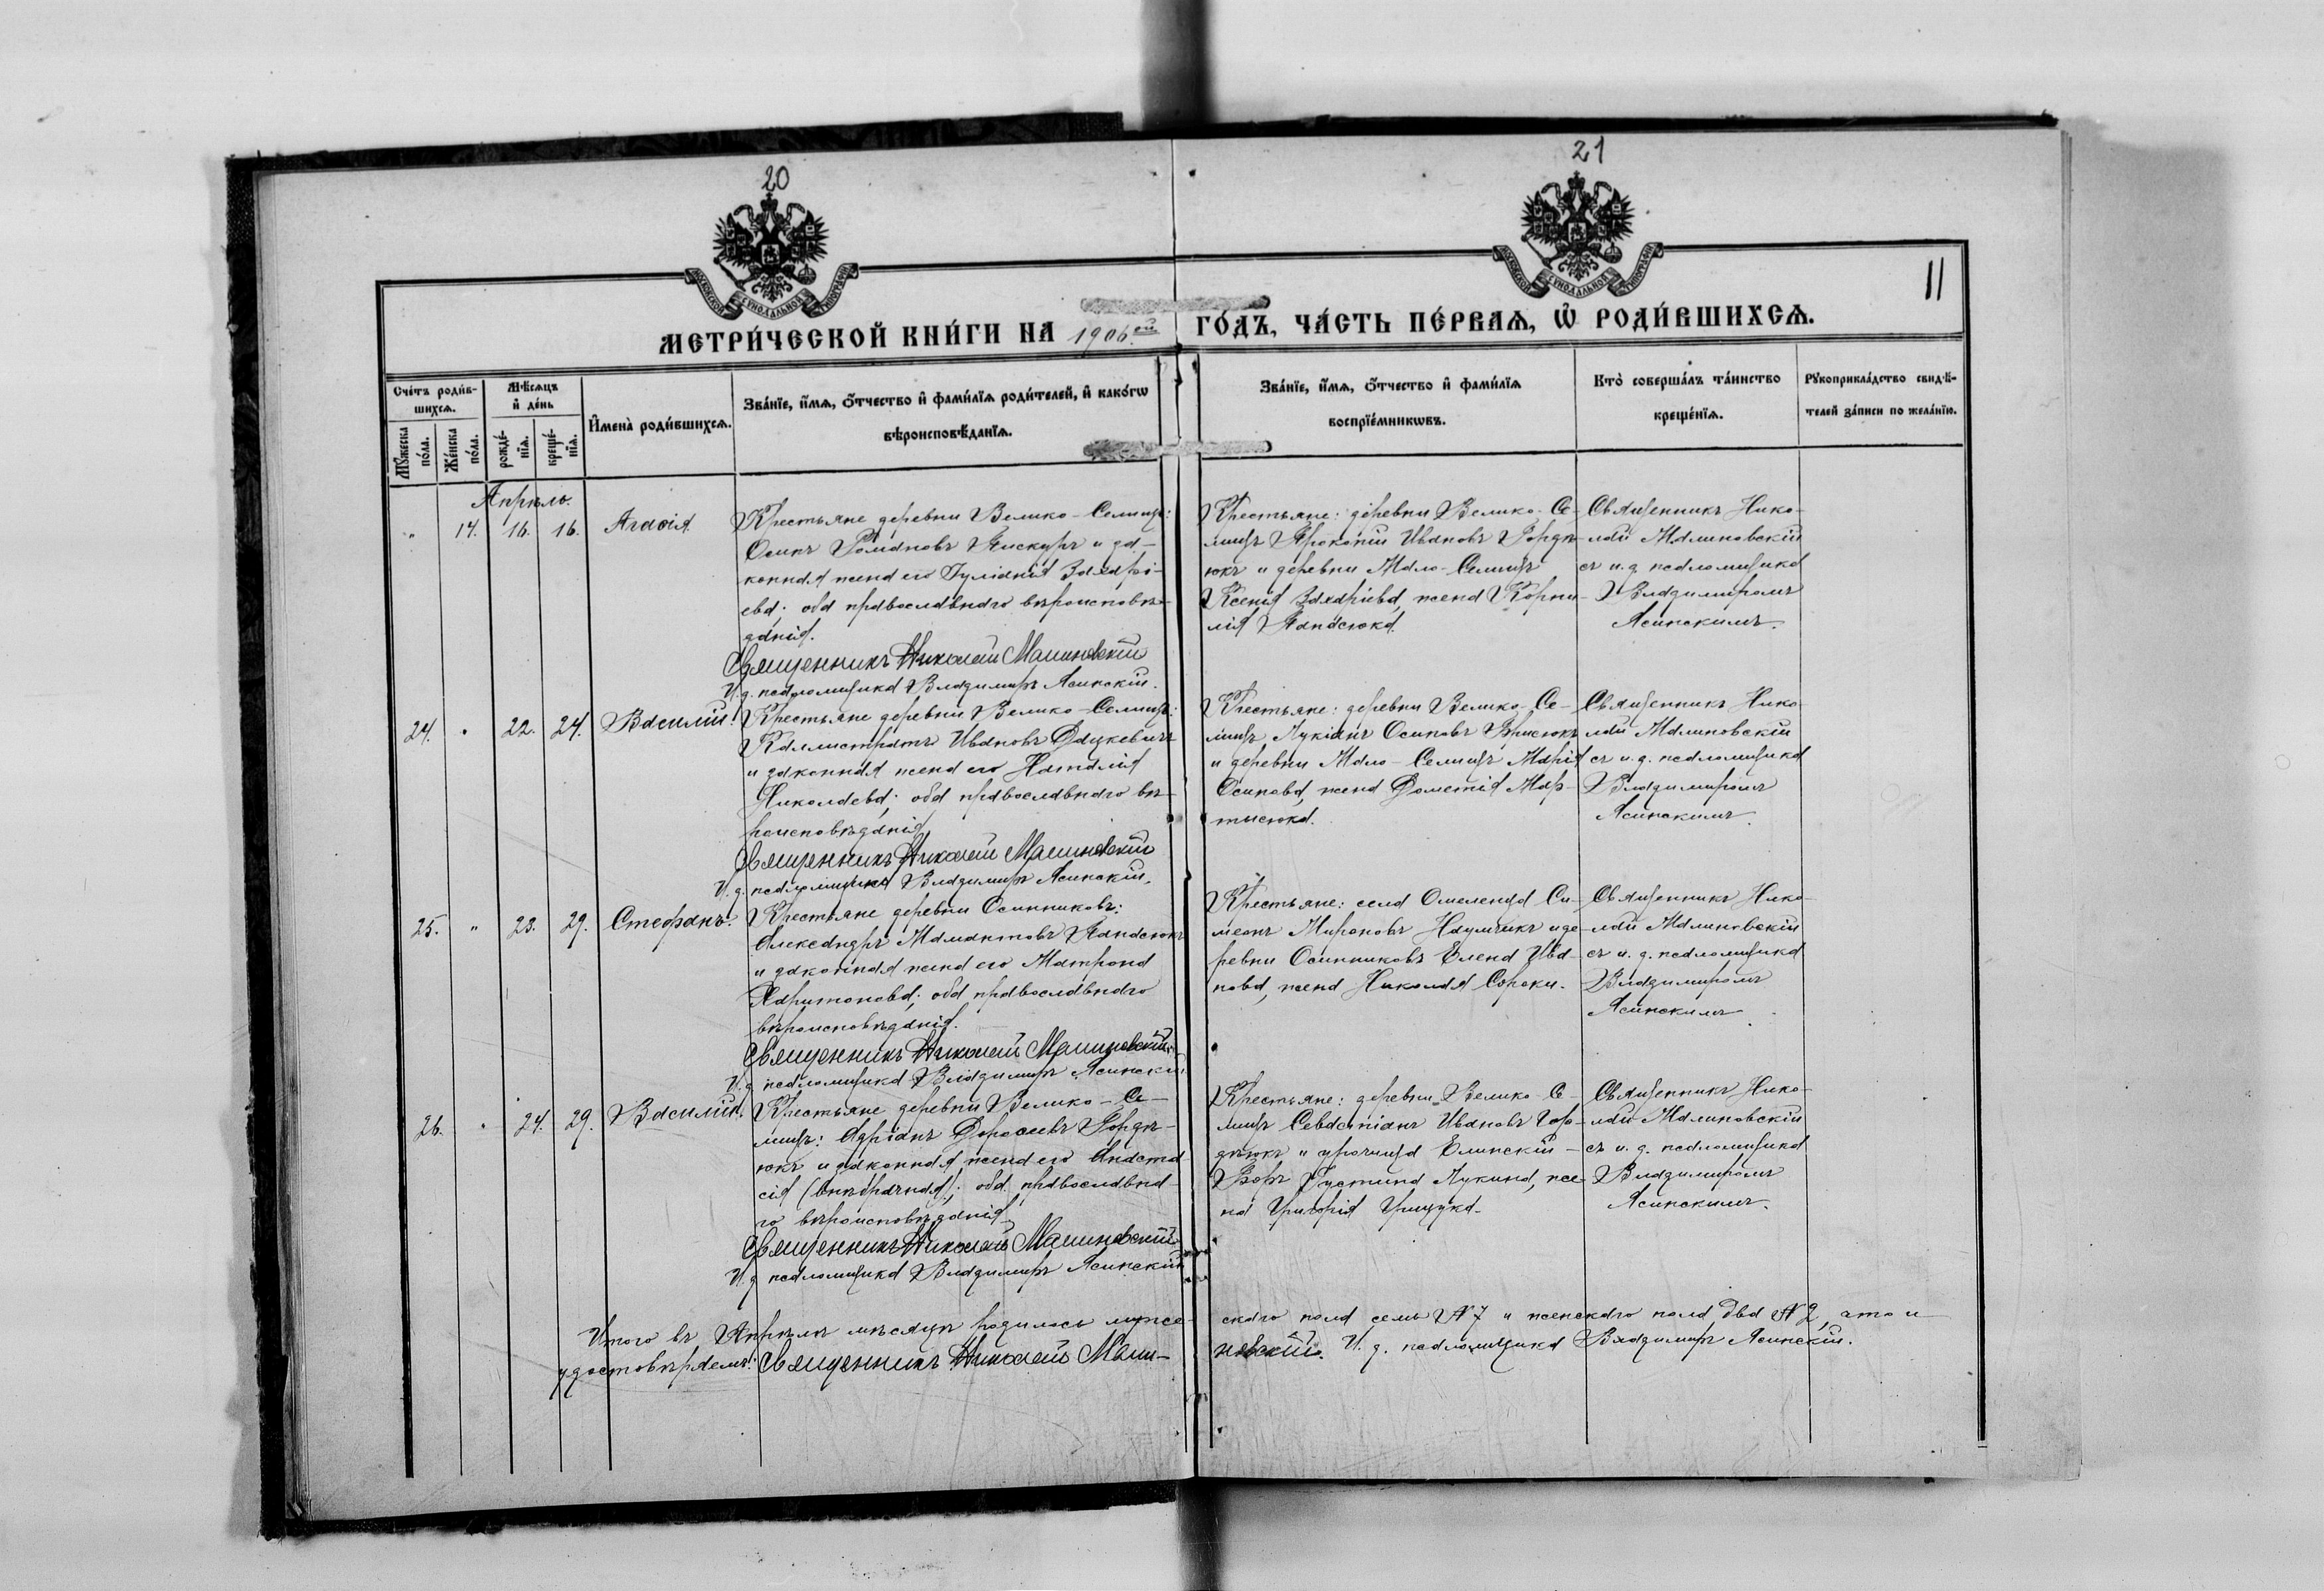 20
21
11
МОСКОВСКОЙ СУНОДАЛЬНОЙ ТИПОГРАФІИ
МОСКОВСКОЙ СУНОДАЛЬНОЙ ТИПОГРАФІИ
МЕТРИ́ЧЕСКОЙ КНИ́ГИ НА 1906ой ГО́ДЪ, ЧА́СТЬ ПЕ́РВАѦ, Ѡ РОДИ́ВШИХСѦ.
Сче́тъ роди́в-
шихсѧ.
Мꙋ́жеска
по́ла.
Же́нска
по́ла.
Мѣ́сѧцъ
и҆ де́нь
рожде́-
нїѧ.
креще́-
нїѧ.
И҆мена̀ роди́вшихсѧ.
Зва́нїе, и҆́мѧ, ѻ҆́тчество и҆ фами́лїѧ роди́телей, и҆ како́гѡ
вѣроисповѣ́данїѧ.
Зва́нїе, и҆́мѧ, ѻ҆́тчество и҆ фами́лїѧ
воспрїе́мникѡвъ.
Кто̀ соверша́лъ та́инство
креще́нїѧ.
Рꙋкоприкла́дство свидѣ́-
телей за́писи по жела́нїю.
Апрѣль.
" 14. 16. 16. Агаѳія
Крестьяне деревни Велико-Селищъ:
Осипъ Романовъ Пискуръ и за-
конная жена его Іуліанія Захарі-
ева; оба православнаго вѣроисповѣ-
данія.
Священникъ Николай Малиновскій
И. д. псаломщика Владимиръ Ясинскій.
Крестьяне: деревни Велико-Се-
лищъ Прокопій Ивановъ Горди-
юкъ и деревни Мало-Селищъ
Ксенія Захаріева, жена Корни-
лія Панасюка.
Священникъ Нико-
лай Малиновскій
съ и. д. псаломщика
Владимиромъ
Ясинскимъ.
24. " 22. 24. Василій.
Крестьяне деревни Велико-Селищъ:
Каллистратъ Ивановъ Дацкевичъ
и законная жена его Наталія
Николаева; оба православнаго вѣ-
роисповѣданія
Священникъ Николай Малиновскій
И. д. псаломщика Владимиръ Ясинскій.
Крестьяне: деревни Велико-Се-
лищъ Лукіанъ Осиповъ
и деревни Мало-Селищъ Марія
Осипова, жена Дометія Мар-
тысюка.
Священникъ Нико-
лай Малиновскій
съ и. д. псаломщика
Владимиромъ
Ясинскимъ.
25. " 23. 29. Стефанъ.
Крестьяне деревни Осинниковъ:
Александръ Мамантовъ Панасюкъ
и законная жена его Матрона
Харитонова; оба православнаго
вѣроисповѣданія.
Священникъ Николай Малиновскій
И. д. псаломщика Владимиръ Ясинскій
Крестьяне: села Омеленца Си-
меонъ Мироновъ Наумчикъ и де-
ревни Осинниковъ Елена Ива-
нова, жена Николая Сороки.
Священникъ Нико-
лай Малиновскій
съ и. д. псаломщика
Владимиромъ
Ясинскимъ
26. " 24. 29. Василій.
Крестьяне деревни Велико-Се-
лищъ: Адріанъ Дороѳеевъ Горди-
юкъ и законная жена его Анаста-
сія (внѣбрачная); оба православна-
го вѣроисповѣданія
Священникъ Николай Малиновскій
И. д. псаломщика Владимиръ Ясинскій
Крестьяне: деревни Велико-Се-
лищъ Севастіанъ Ивановъ Гор-
діюкъ и урочища Елинскій-
Боръ Іустина Лукина, же-
на Григорія Грицука.
Священникъ Нико-
лай Малиновскій
съ и. д. псаломщика
Владимиромъ
Ясинскимъ.
Итого въ Апрѣлѣ мѣсяцѣ родилось муже-скаго пола семь № 7 и женскаго пола два № 2, что и
удостовѣряемъ: Священникъ Николай Мали-новскій. И. д. псаломщика Владимиръ Ясинскій.